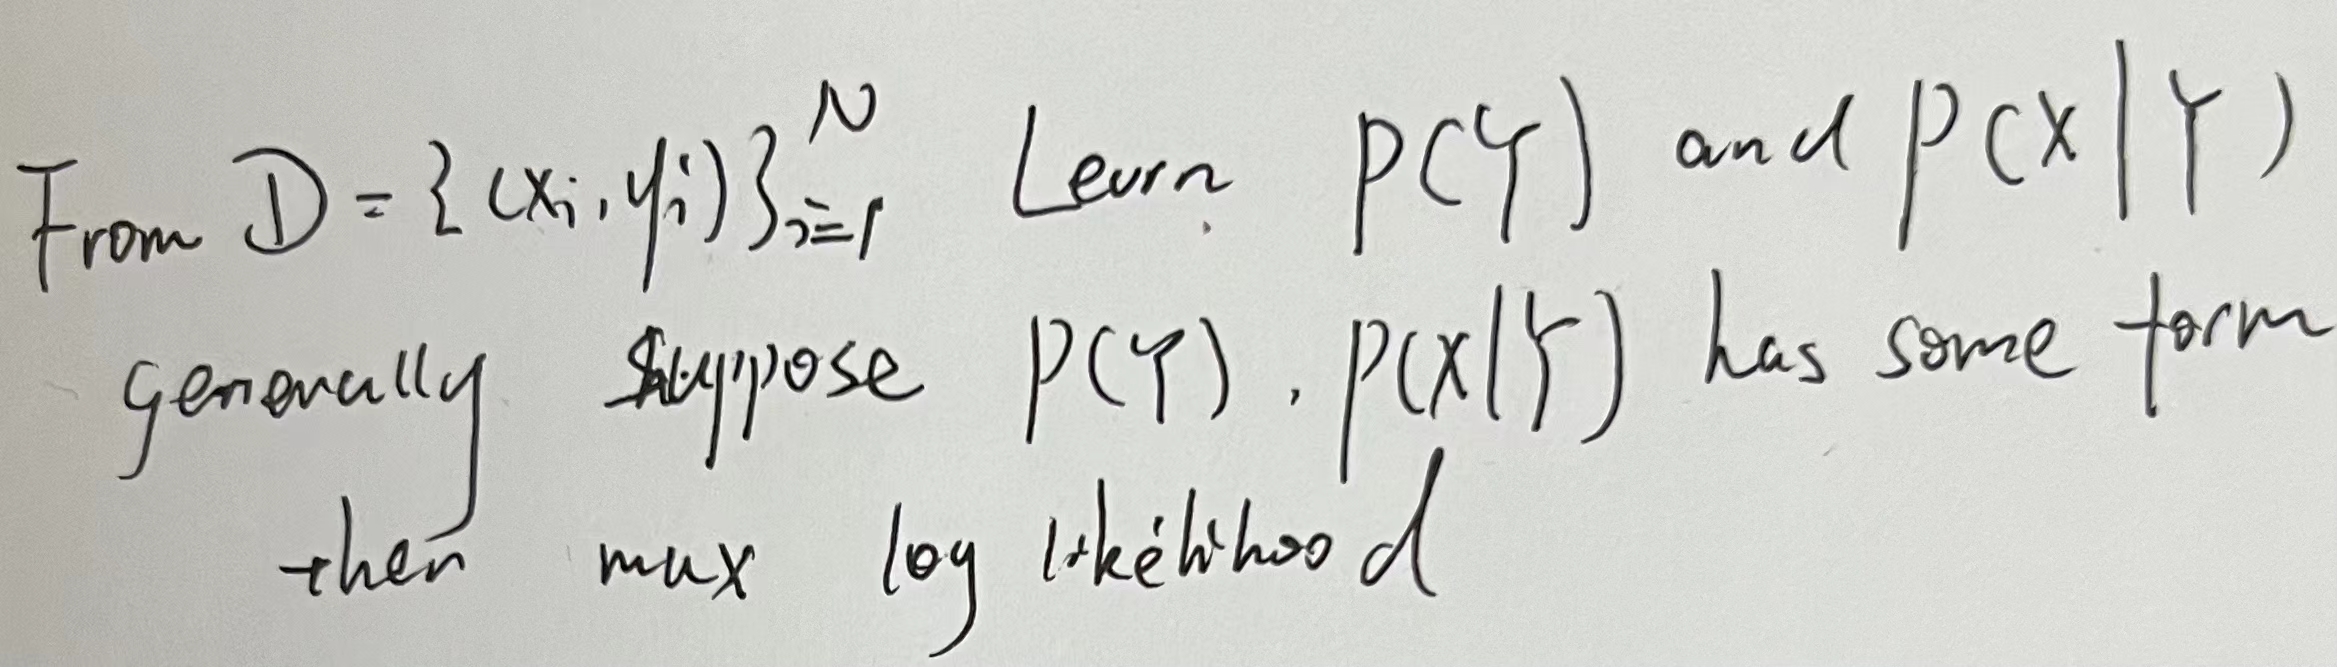 From D = {(xi, yi)}_{i=1}^N Learn P(Y) and P(X|Y)
generally suppose P(Y), P(X|Y) has some form
then max log likelihood